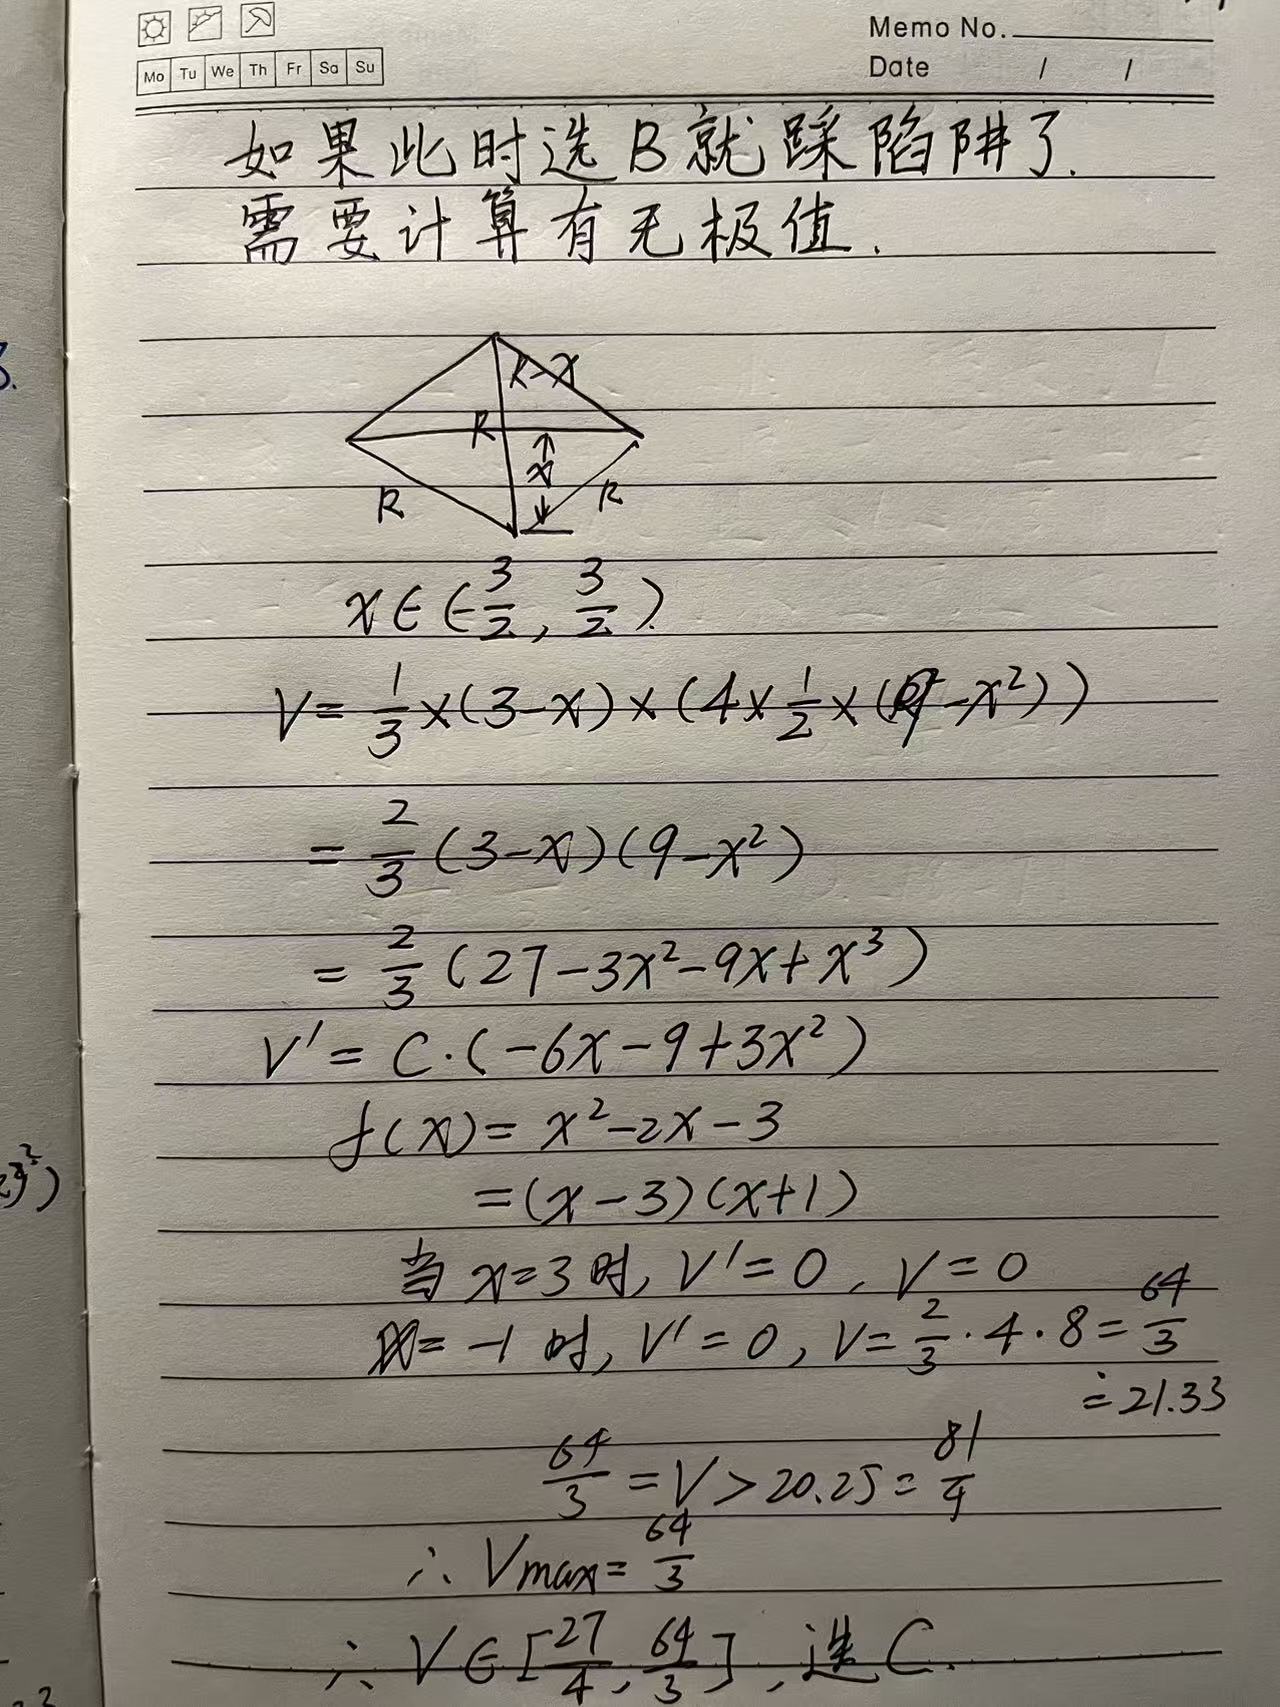 Memo No.
Mo Tu We Th Fr Sa Su
Date / /
如果此时选B就踩陷阱了.
需要计算有无极值.
R-x
R
x
R
R
x∈(-3/2, 3/2)
V=1/3×(3-x)×(4×1/2×(9-x²))
=2/3(3-x)(9-x²)
=2/3(27-3x²-9x+x³)
V'=C·(-6x-9+3x²)
f(x)=x²-2x-3
=(x-3)(x+1)
当x=3时, V'=0, V=0
x=-1时, V'=0, V=2/3·4·8=64/3
≐21.33
64/3=V>20.25=81/4
∴Vmax=64/3
∴V∈[27/4, 64/3], 选C.